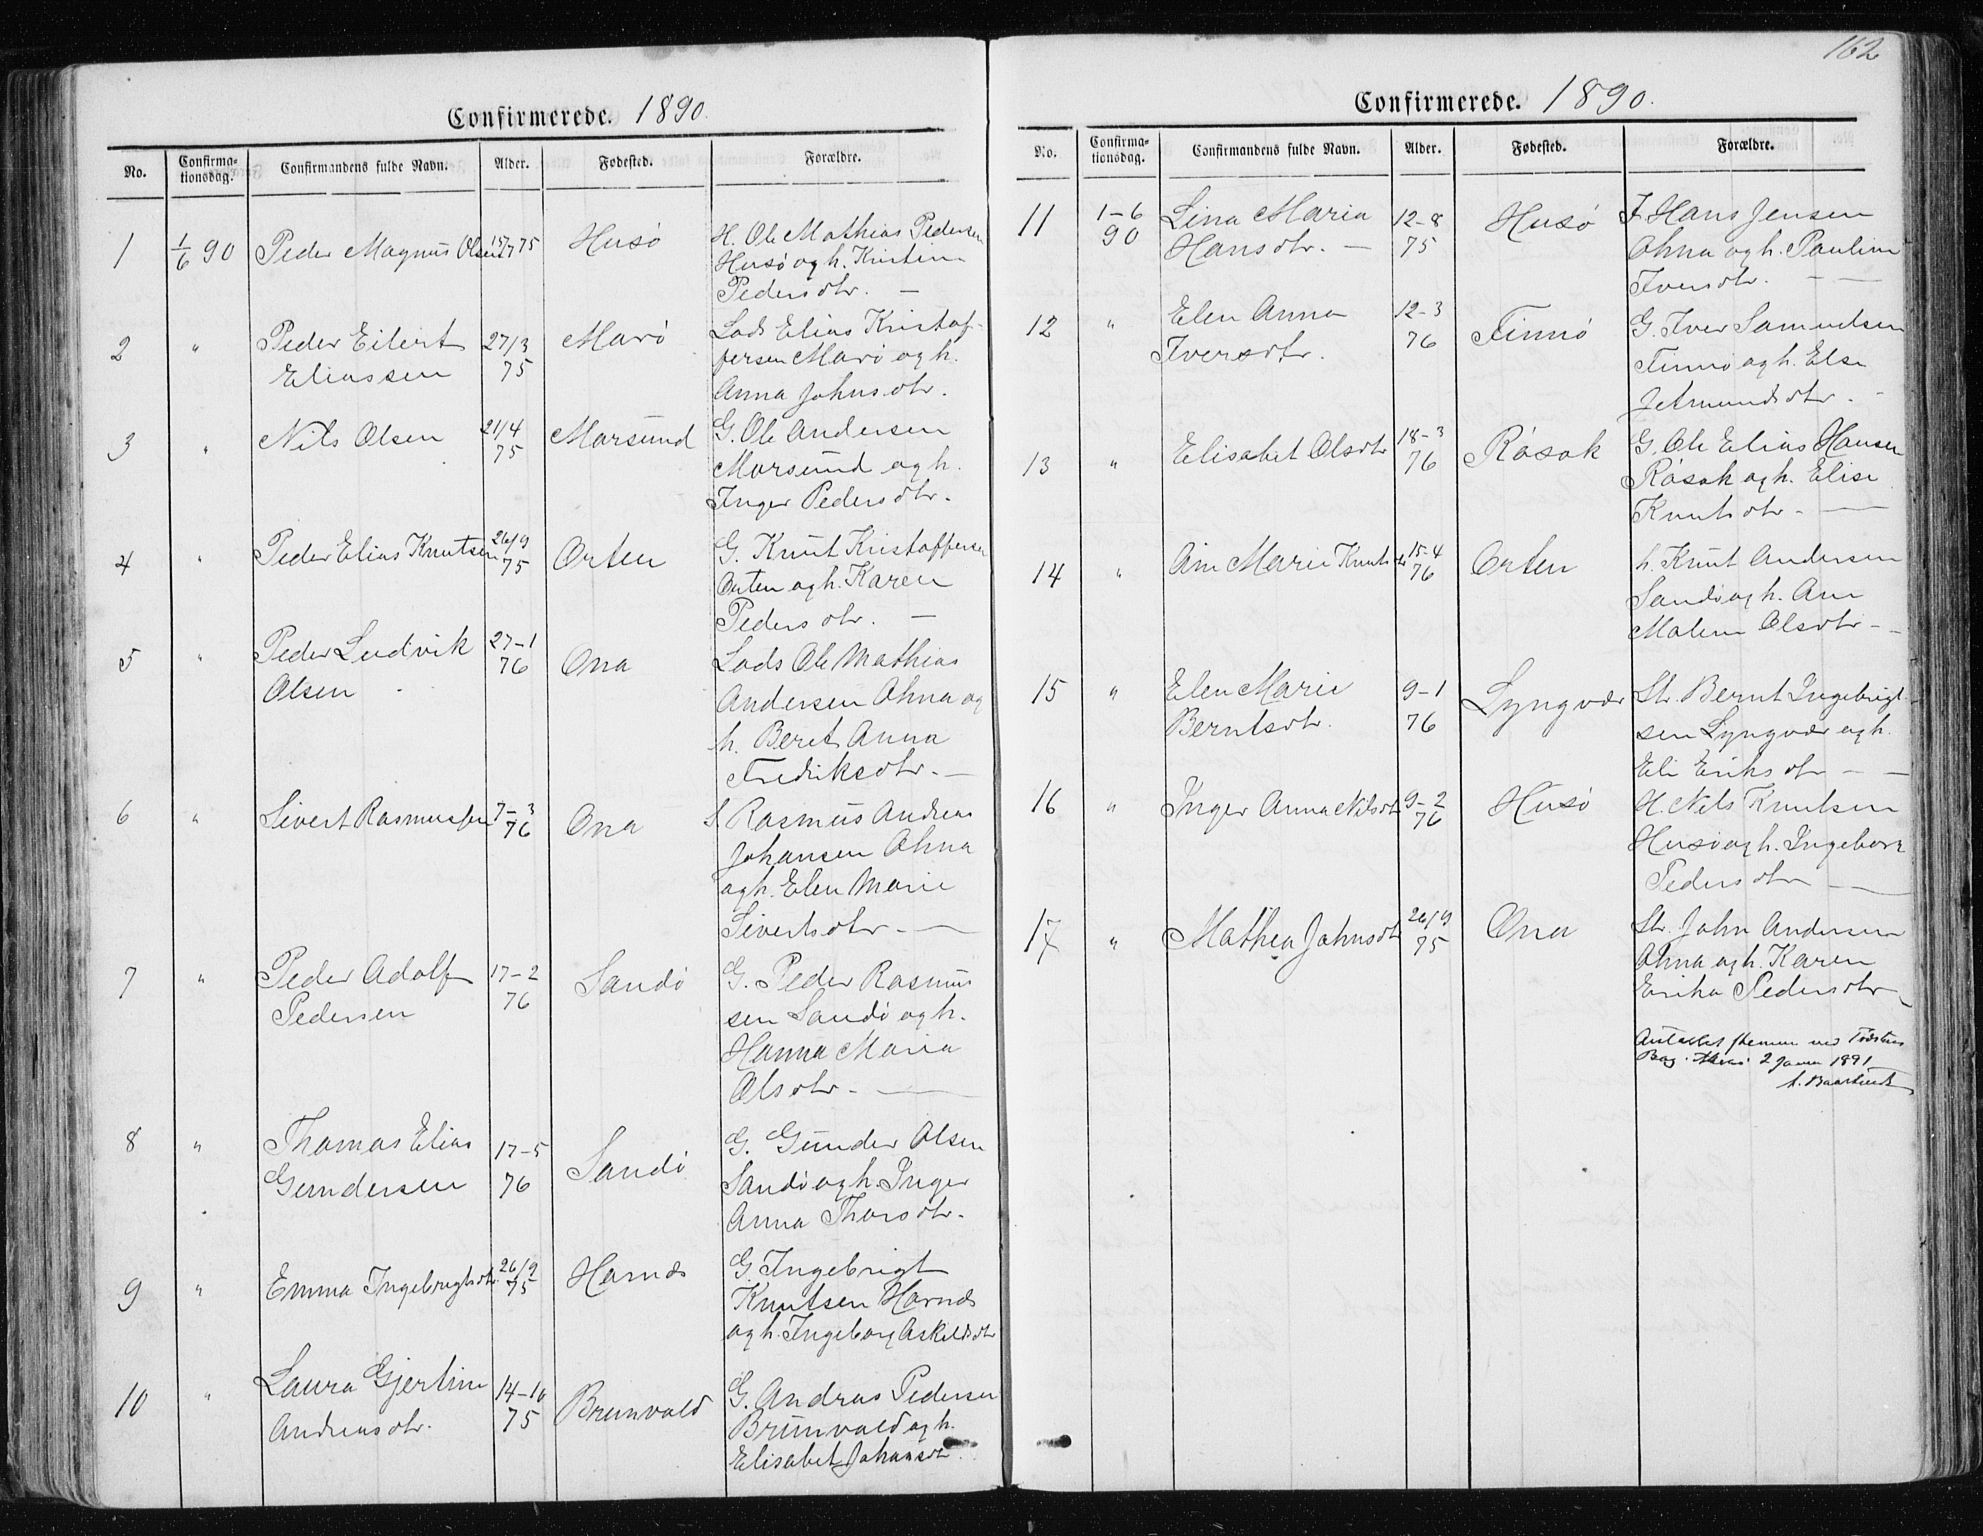 Confirmerede. 1890.
No. Confirma-tionsdag. Confirmandens fulde Navn. Alder. Fødested. Forældre.
1 1/6 90 Peder Magnus Olsen 15/7 75 Husö H. Ole Mathias Pedersen
Husö og h. Kirsten
Pedersdtr. —
2 " Peder Eilert 27/3 Marö Lods Elias Kristof-
Eliassen 75 fersen Marö og h.
Anna Johnsdtr.
3 " Nils Olsen 21/4 Morsund G. Ole Andersen
75 Morsund og h.
Inger Pedersdtr.
4 " Peder Elias Knutsen 26/9 Orten G. Knut Kristoffersen
75 Orten og h. Karen
Pedersdtr. —
5 " Peder Ludvik 27-1 Ona Lods Ole Mathias
Olsen 76 Andersen Ohna og
h. Beret Anna
Fredriksdtr. —
6 " Sivert Rasmussen 7-3 Ona S. Rasmus Andreas
76 Johansen Ohna
og h. Elen Marie
Sivertsdtr. —
7 " Peder Adolf 17-2 Sandö G. Peder Rasmus
Pedersen 76 sen Sandö og h.
Hanna Maria
Olsdtr. —
8 " Thomas Elias 17-5 Sandö G. Gunder Olsen
Gundersen 76 Sandö og h. Inger
Anna Thorsdtr.
9 " Emma Ingebrigtsdtr 26/9 Harnæs G. Ingebrigt
75 Knutsen Harnæs
og h. Ingeborg Askeldsdtr
10 " Laura Gjertine 14-10 Brunvold G. Andreas Pedersen
Andreasdtr. 75 Brunvold og h.
Elisabet Johansdtr.
162
Confirmerede. 1890.
No. Confirma-tionsdag. Confirmandens fulde Navn. Alder. Fødested. Forældre.
11 1-6 Lina Maria 12-8 Husö F. Hans Jensen
90 Hansdtr. — 75 Ohna og h. Pauline
Iversdtr. —
12 " Elen Anna 12-3 Finnö G. Iver Samuelsen
Iversdtr. 76 Finnö og h. Else
Jetmundsdtr.
13 " Elisabet Olsdtr 18-3 Råsok G. Ole Elias Hansen
76 Råsok og h. Elise
Knutsdtr. —
14 " Ane Marie Knutsdtr 15-4 Orten h. Knut Andersen
76 Sandö og h. Ane
Malene Olsdtr —
15 " Elen Marie 9-1 Lyngvær Str. Bernt Ingebrigt-
Berntsdtr. 76 sen Lyngvær og h.
Eli Eriksdtr —
16 " Inger Anna Nilsdtr 9-2 Husö H. Nils Knutsen
76 Husö og h. Ingeborg
Pedersdtr —
17 " Mathea Johnsdtr 26/9 Ona Str. John Andersen
75 Ohna og h. Karen
Erika Pedersdtr
2 Janu 1891